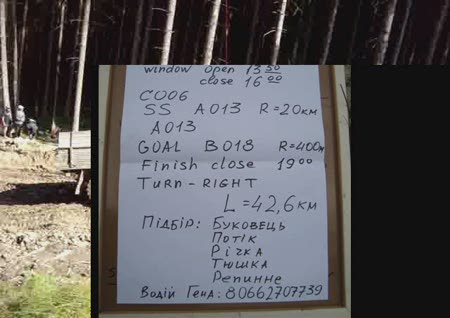 window open 13 50
close 16 00
C006
SS A013 R=20км
A013
GOAL B018 R=400м
Finish close 19 00
TURN-RIGHT
L=42,6км
Підбір: Буковець
Потік
Річка
Тюшка
Репинне
Водій Гена: 80662707739